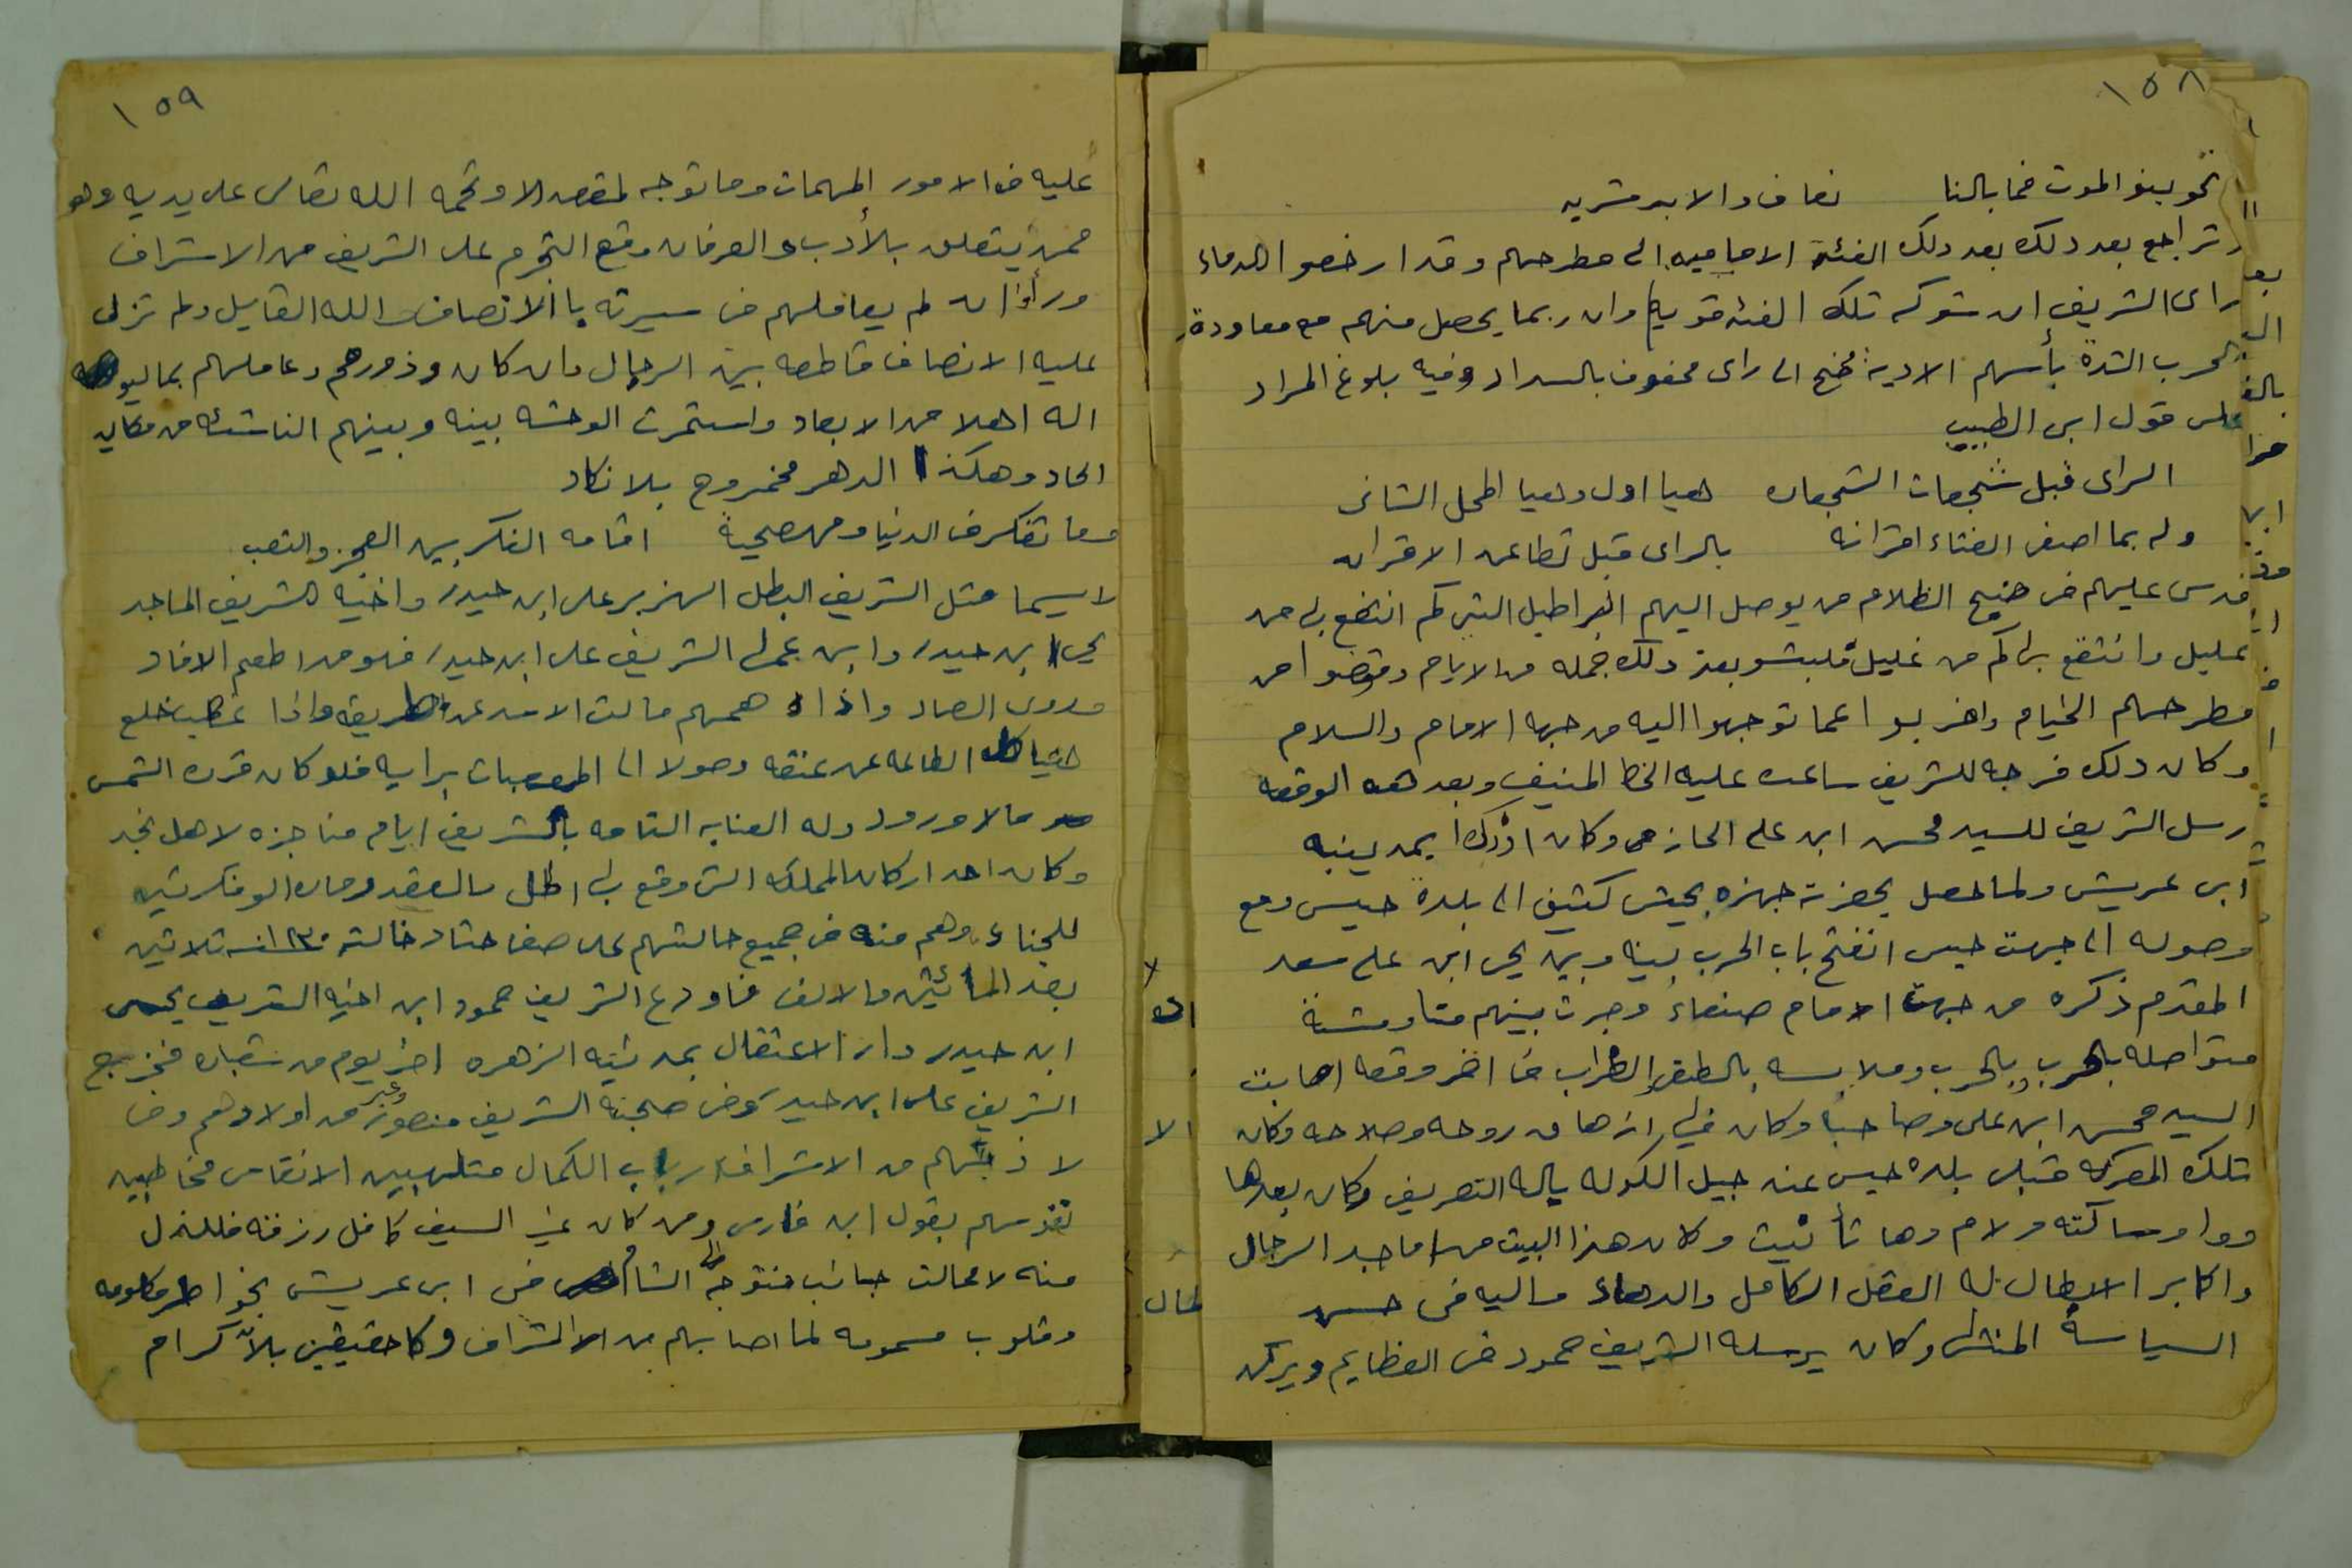 ١٥٨
نحو بينو الموت فما بالنا نعاف والابد مشربه
تراجع بعد ذلك بعد ذلك الفئة الاماميه الى مطرحهم وقد ارخصوا الدماء
راى الشريف ان شوكه تلك الفئه قويه وان ربما يحصل منهم معاودة
الحرب الشدة بأسهم الادبية فجنح الى راى محفوف بالسداد وفيه بلوغ المراد
على قول ابى الطبيب
الراى قبل شجعات الشجعان هيا اول وهيا المحل الثانى
ولربما اصفى الفتاء اقرانه بالراى قبل تطاعن الاقران
فدس عليهم فى جنح الظلام من يوصل اليهم البراطيل التى كم انتفع بها من
عليل وانتقع بها كم من غليل فلبثو بعد ذلك جمله من الايام وقوضوا من
مطرحهم الخيام واضربوا عما توجهوا اليه من جهه الامام والسلام
وكان ذلك فرجه للشريف ساعده عليه الخط المنيف وبعد هذه الوقعه
رسل الشريف للسيد محسن ابن على الحازمى وكان اذذك بمدينه
ابى عريش ولما حصل بحضرته جهزه بجيش كثيف الى بلدة حيس ومع
وصوله الى جهت حيس انفتح باب الحرب بينه وبين يحى ابن على سعد
المقدم ذكره من جهت الامام صنعاء وجرت بينهم مناوشة
متواصله بالحرب وبالحرب وملابسه بالطعن والظراب فى اخر وقعه اصابت
السيد محسن ابن على وصاحبا وكان فى ازهاق روحه وصلاحه وكان
تلك المعركه قبلى بلده حيس عند جبل الكوله باله التعريف وكان بعدها
ووا وساكنه ولام وها تأنيث وكان هذا البيت من اماجد الرجال
واكابر الابطال له العقل الكامل والدهاء واليه فى حسن
السياسة المنتهى وكان يرسله الشريف حمود فى العظايم ويركن
١٥٩
عليه فى الامور المهمات وما توجه لمقصد الا وتحمه الله تعالى على يديه وهو
ممن يتعلق بالأدب والعرفان وقع التجرم على الشريف من الاشراف
ورأوا ان لم يعاملهم فى سيرته بالانصاف والله القايل ولم تزل
عليه الانصاف قاطعه بين الرجال وان كان وذورحم وعاملهم بما ليو
اله اهلا من الابعاد واستمرت الوحشه بينه وبينهم الناشئه من مكان
الحاد وهكذا الدهر ممزوج بلا نكاد
وما تفكر فى الدنيا ومهجيه اقامه الفكر بين العجز والتعب
لاسيما مثل الشريف البطل الهزبر على ابن حيدر واخيه الشريف الماجد
يحى ابن حيدر وابن عمها الشريف على ابن حيدر فهو من اطعم الافاد
وروى الصاد واذا هممهم مالت الاسد عن طريقه واذا غضب خلع
هياكل الطاعه عن عنقه وصولا الى المرعبات برايه فلو كان قرن الشمس
مالا ورود وله العنايه التامه بالشريف ايام مناجزه لاهل نجد
وكان احد اركان المملكه التى وقع بها الحل والعقد
للجناء وهم منه فى جميع حالتهم على صفا حتا دخالت ١٢٣٠ سنه ثلاثين
بعد المائتين والالف فاودع الشريف حمود ابن اخيه الشريف يحيى
ابن حيدر دار الاعتقال بمدينه الزهره اخر يوم من شعبان فخرج
الشريف على ابن حيدر صحبته الشريف منصور وغير من اولادهم ومن
لا ذ بهم من الاشراف ارباب الكمال متلهبين الانفاس مخاطبين
نفوسهم بقول ابن فارس ومن كان غير السيف كافل رزقه فللذل
منه لا محالت جانب فتوجه الى الشام فى ابى عريش بخواطر مكلومه
وقلوب مسمومه لما اصابهم من الاشراف وكا حقيقين بلا كرام